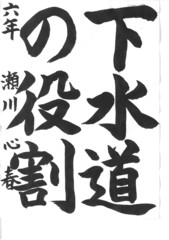 下水道
の役割
六年 瀬川心春